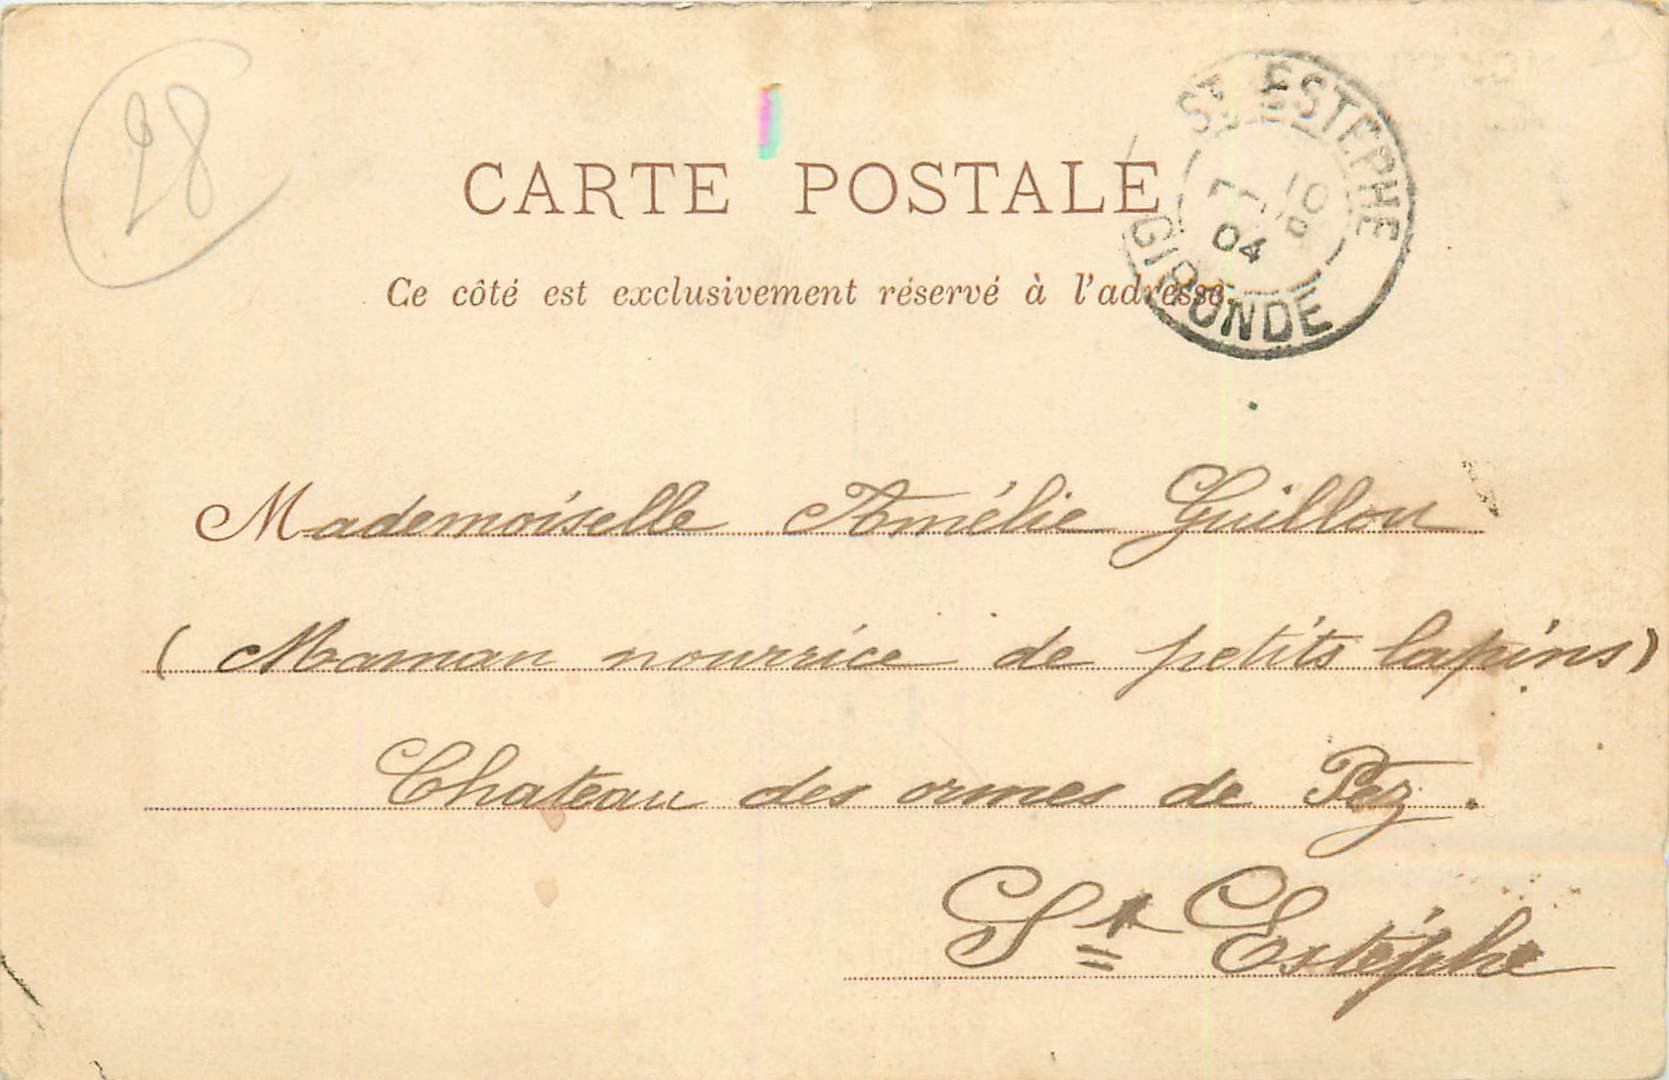 28
CARTE POSTALE
Ce côté est exclusivement réservé à l'adresse.
ST ESTEPHE
10
FEVR
04
GIRONDE
Mademoiselle Amélie Guillou
(Maman nourrice de petits lapins)
Chateau des ormes de Pez.
St Estéphe